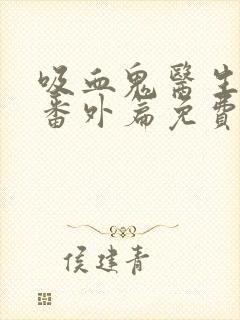 吸血鬼醫生
番外扁免費
侯建青